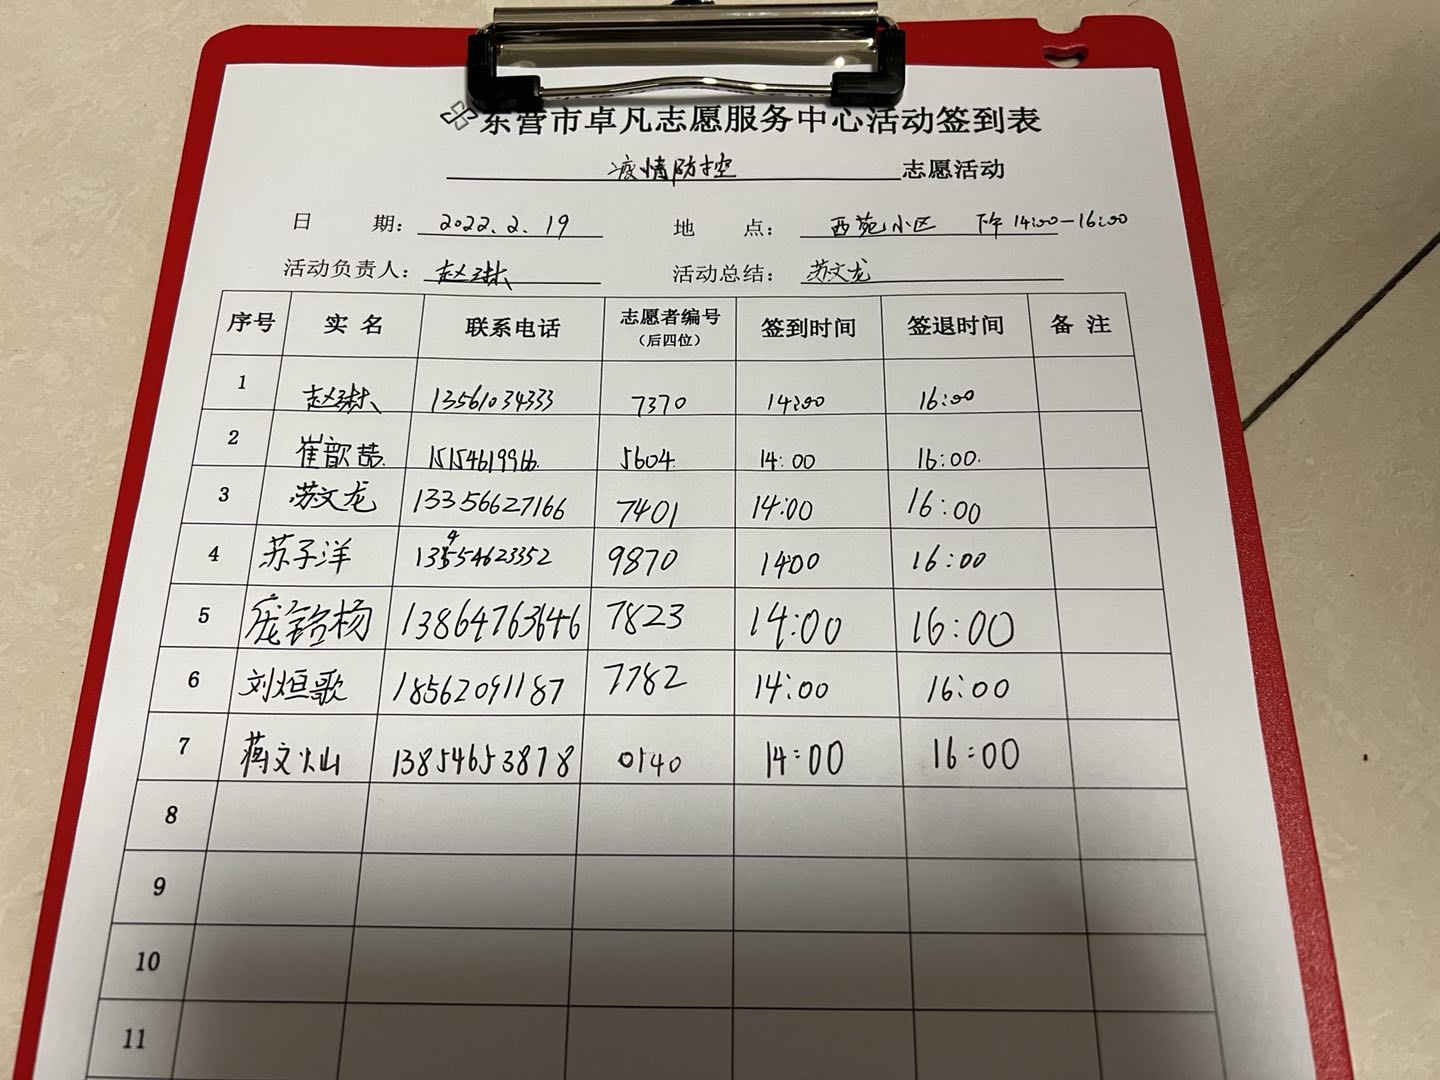 东营市卓凡志愿服务中心活动签到表
疫情防控 志愿活动
日 期: 2022.2.19 地 点: 西苑小区 下午 14:00-16:00
活动负责人: 赵琳 活动总结: 苏文龙
序号 实 名 联系电话 志愿者编号 (后四位) 签到时间 签退时间 备 注
1 赵琳 13561034333 7370 14:00 16:00
2 崔歆喆 15154619966 5604 14:00 16:00
3 苏文龙 13356627166 7401 14:00 16:00
4 苏子洋 9870 14:00 16:00
5 庞铭杨 13864763646 7823 14:00 16:00
6 刘烜歌 18562091187 7782 14:00 16:00
7 蒋文灿 13854653878 0140 14:00 16:00
8
9
10
11